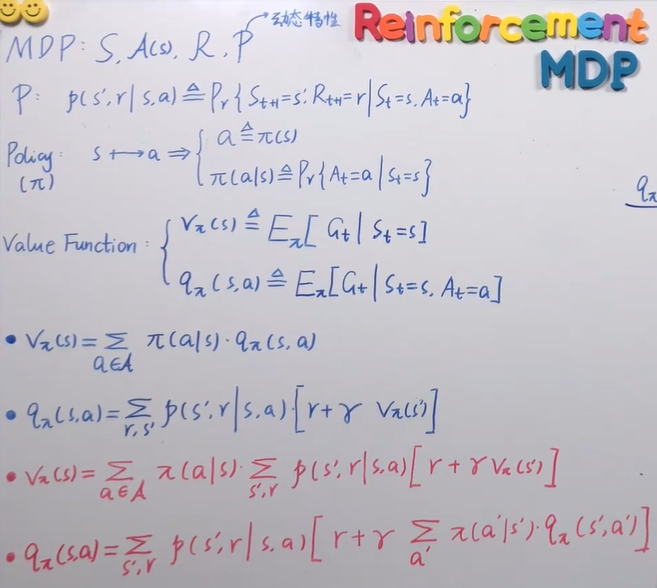 Reinforcement
MDP
MDP: S, A(s), R, P → 动态特性
P: p(s', r | s, a) ≜ Pr{S_{t+1}=s', R_{t+1}=r | S_t=s, A_t=a}
Policy: (π) s ⟼ a ⇒ { a ≜ π(s)
π(a|s) ≜ Pr{A_t=a | S_t=s}
Value Function: { v_π(s) ≜ E_π[G_t | S_t=s]
q_π(s,a) ≜ E_π[G_t | S_t=s, A_t=a]
q_π
• v_π(s) = Σ_{a∈A} π(a|s) · q_π(s,a)
• q_π(s,a) = Σ_{r,s'} p(s', r | s, a) · [r + γ v_π(s')]
• v_π(s) = Σ_{a∈A} π(a|s) · Σ_{s',r} p(s', r | s, a) [r + γ v_π(s')]
• q_π(s,a) = Σ_{s',r} p(s', r | s, a) [r + γ Σ_{a'} π(a'|s') · q_π(s',a')]